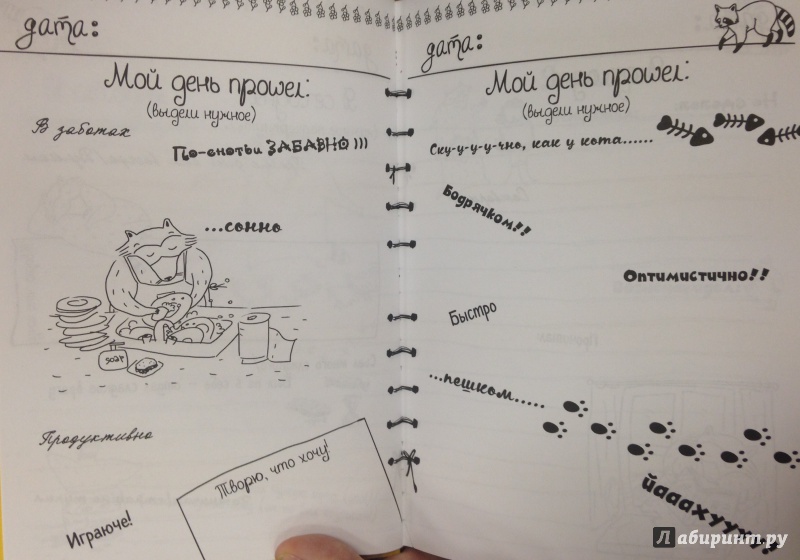 дата:
Мой день прошел:
(выдели нужное)
В заботах
По-енотьи ЗАБАВНО)))
...сонно
soap
Продуктивно
Творю, что хочу!
Играюче!
дата:
Мой день прошел:
(выдели нужное)
Ску-у-у-у-чно, как у кота......
Бодрячком!!
Оптимистично!!
Быстро
...пешком.....
Йааахууу!!!
Лабиринт.ру